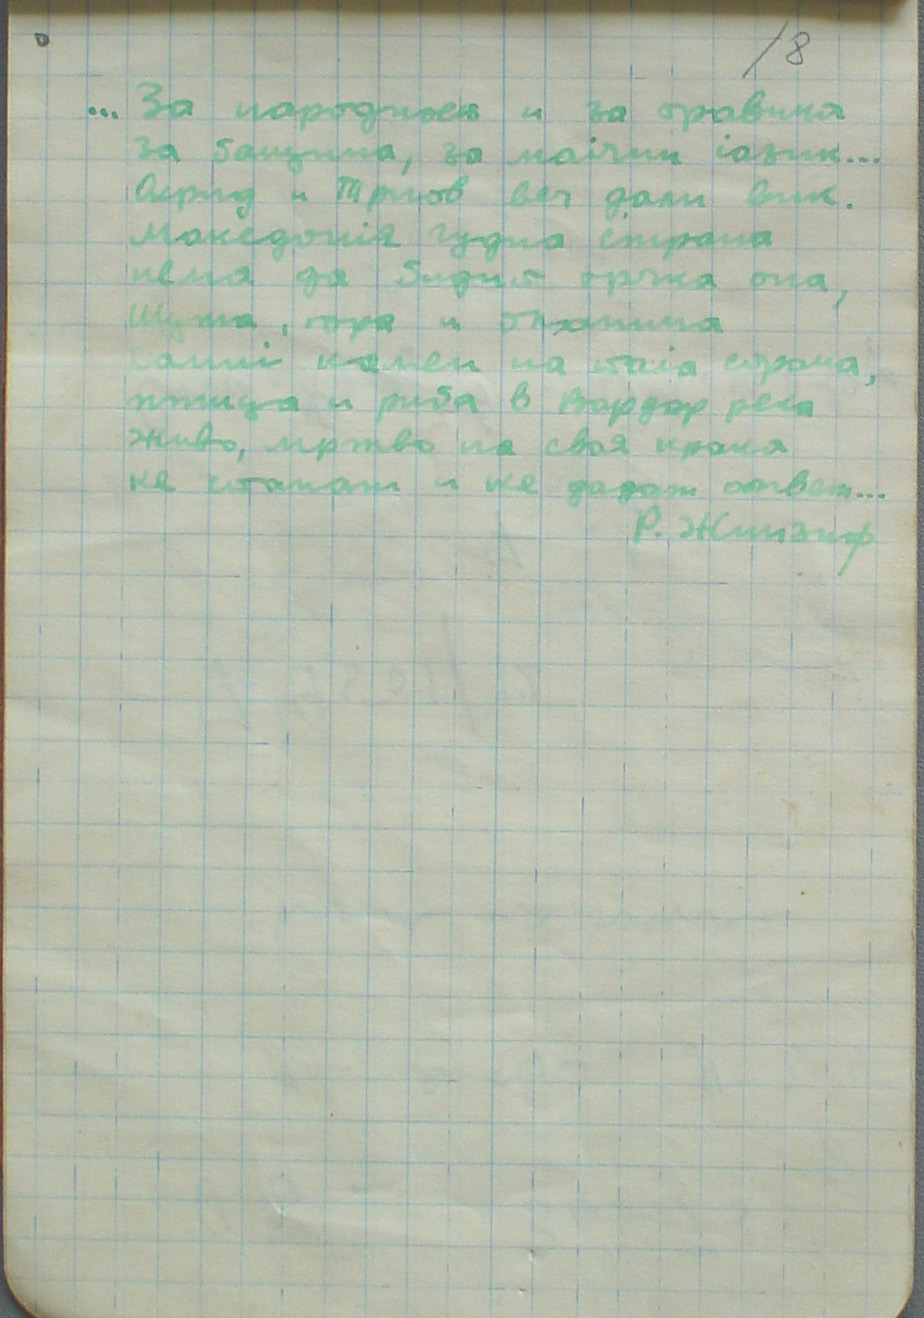 18
... За народност и за правина
За бащина, за маічин іазик...
Охрид и Трнов веч дали вик.
Македоніа чудна страна
нема да бидит грчка она,
Шума, гора и планина
самиі камен на таіа страна,
птица и риба в Вардар река
живо, мртво на своя крака
ке станат и ке дадат ответ...
Р. Жинзиф